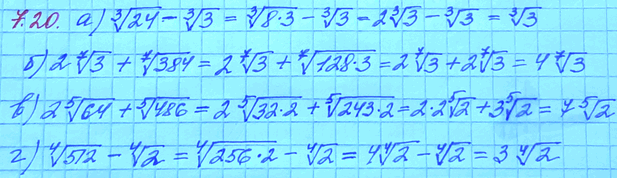 7.20. а) ∛24 - ∛3 = ∛(8·3) - ∛3 = 2∛3 - ∛3 = ∛3
б) 2 ⁷√3 + ⁷√384 = 2 ⁷√3 + ⁷√(128·3) = 2 ⁷√3 + 2 ⁷√3 = 4 ⁷√3
в) 2 ⁵√64 + ⁵√486 = 2 ⁵√(32·2) + ⁵√(243·2) = 2·2 ⁵√2 + 3 ⁵√2 = 7 ⁵√2
г) ⁴√512 - ⁴√2 = ⁴√(256·2) - ⁴√2 = 4 ⁴√2 - ⁴√2 = 3 ⁴√2